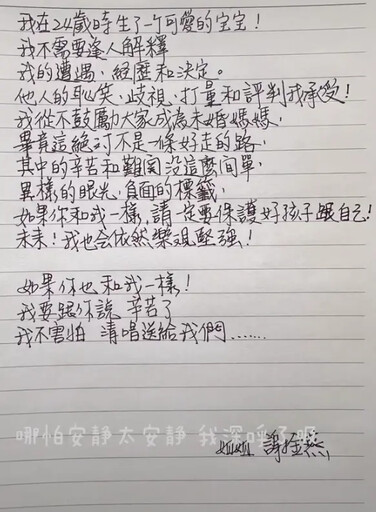 我在24歲時生了一个可愛的宝宝!
我不需要逢人解釋
我的遭遇,經歷和決定。
他人的恥笑、歧視、打量和評判我承受!
我從不鼓勵大家成為未婚媽媽,
畢竟這絕对不是一條好走的路,
其中的辛苦和難関没這麼间單,
異樣的眼光、負面的標籤,
如果你和我一樣,請一定要保護好孩子跟自己!
未來!我也会依然樂观堅強!
如果你也和我一樣!
我要跟你說 辛苦了
我不害怕 清唱送給我們.......
哪怕安靜太安靜 我深呼了吸
謝